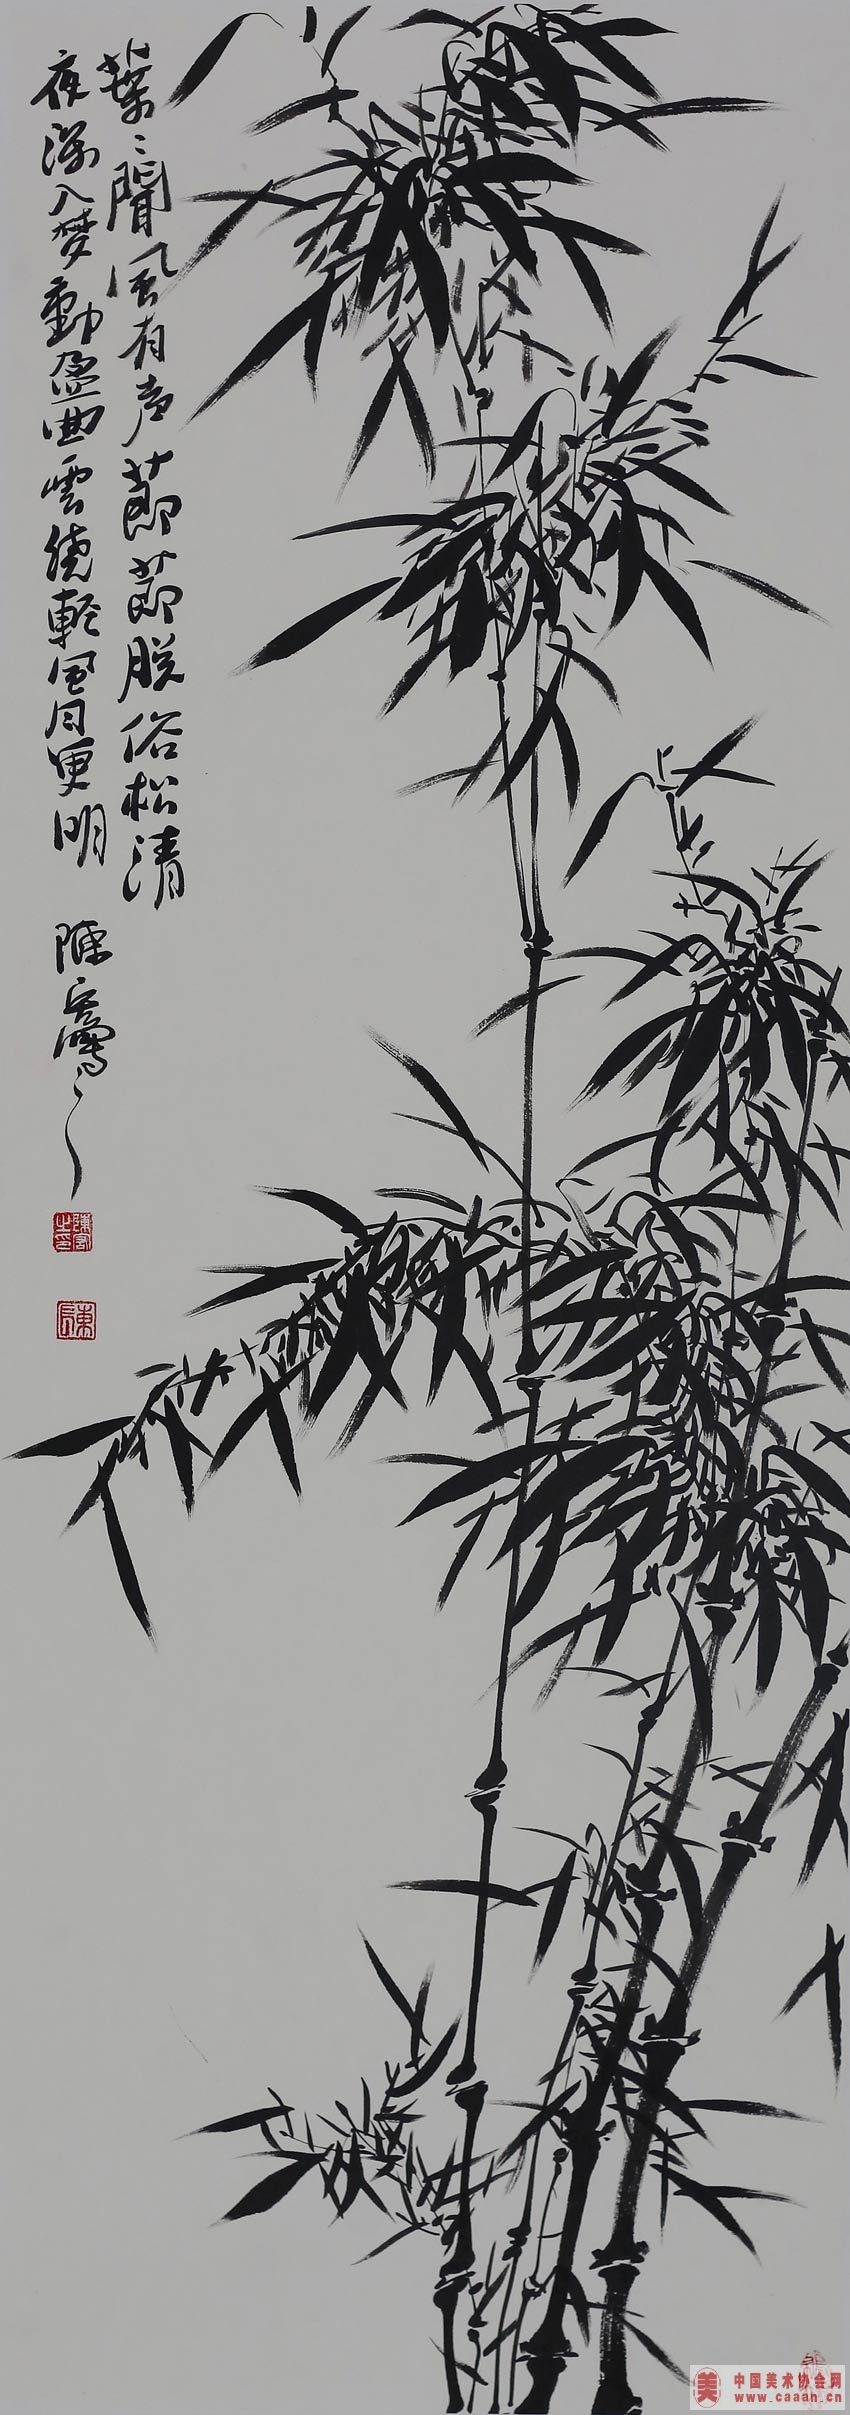 葉〻聞風有声節節脱俗松清
夜深入梦動盈曲雲繞軽風月更明
陳
中国美术协会网
www.caaah.cn